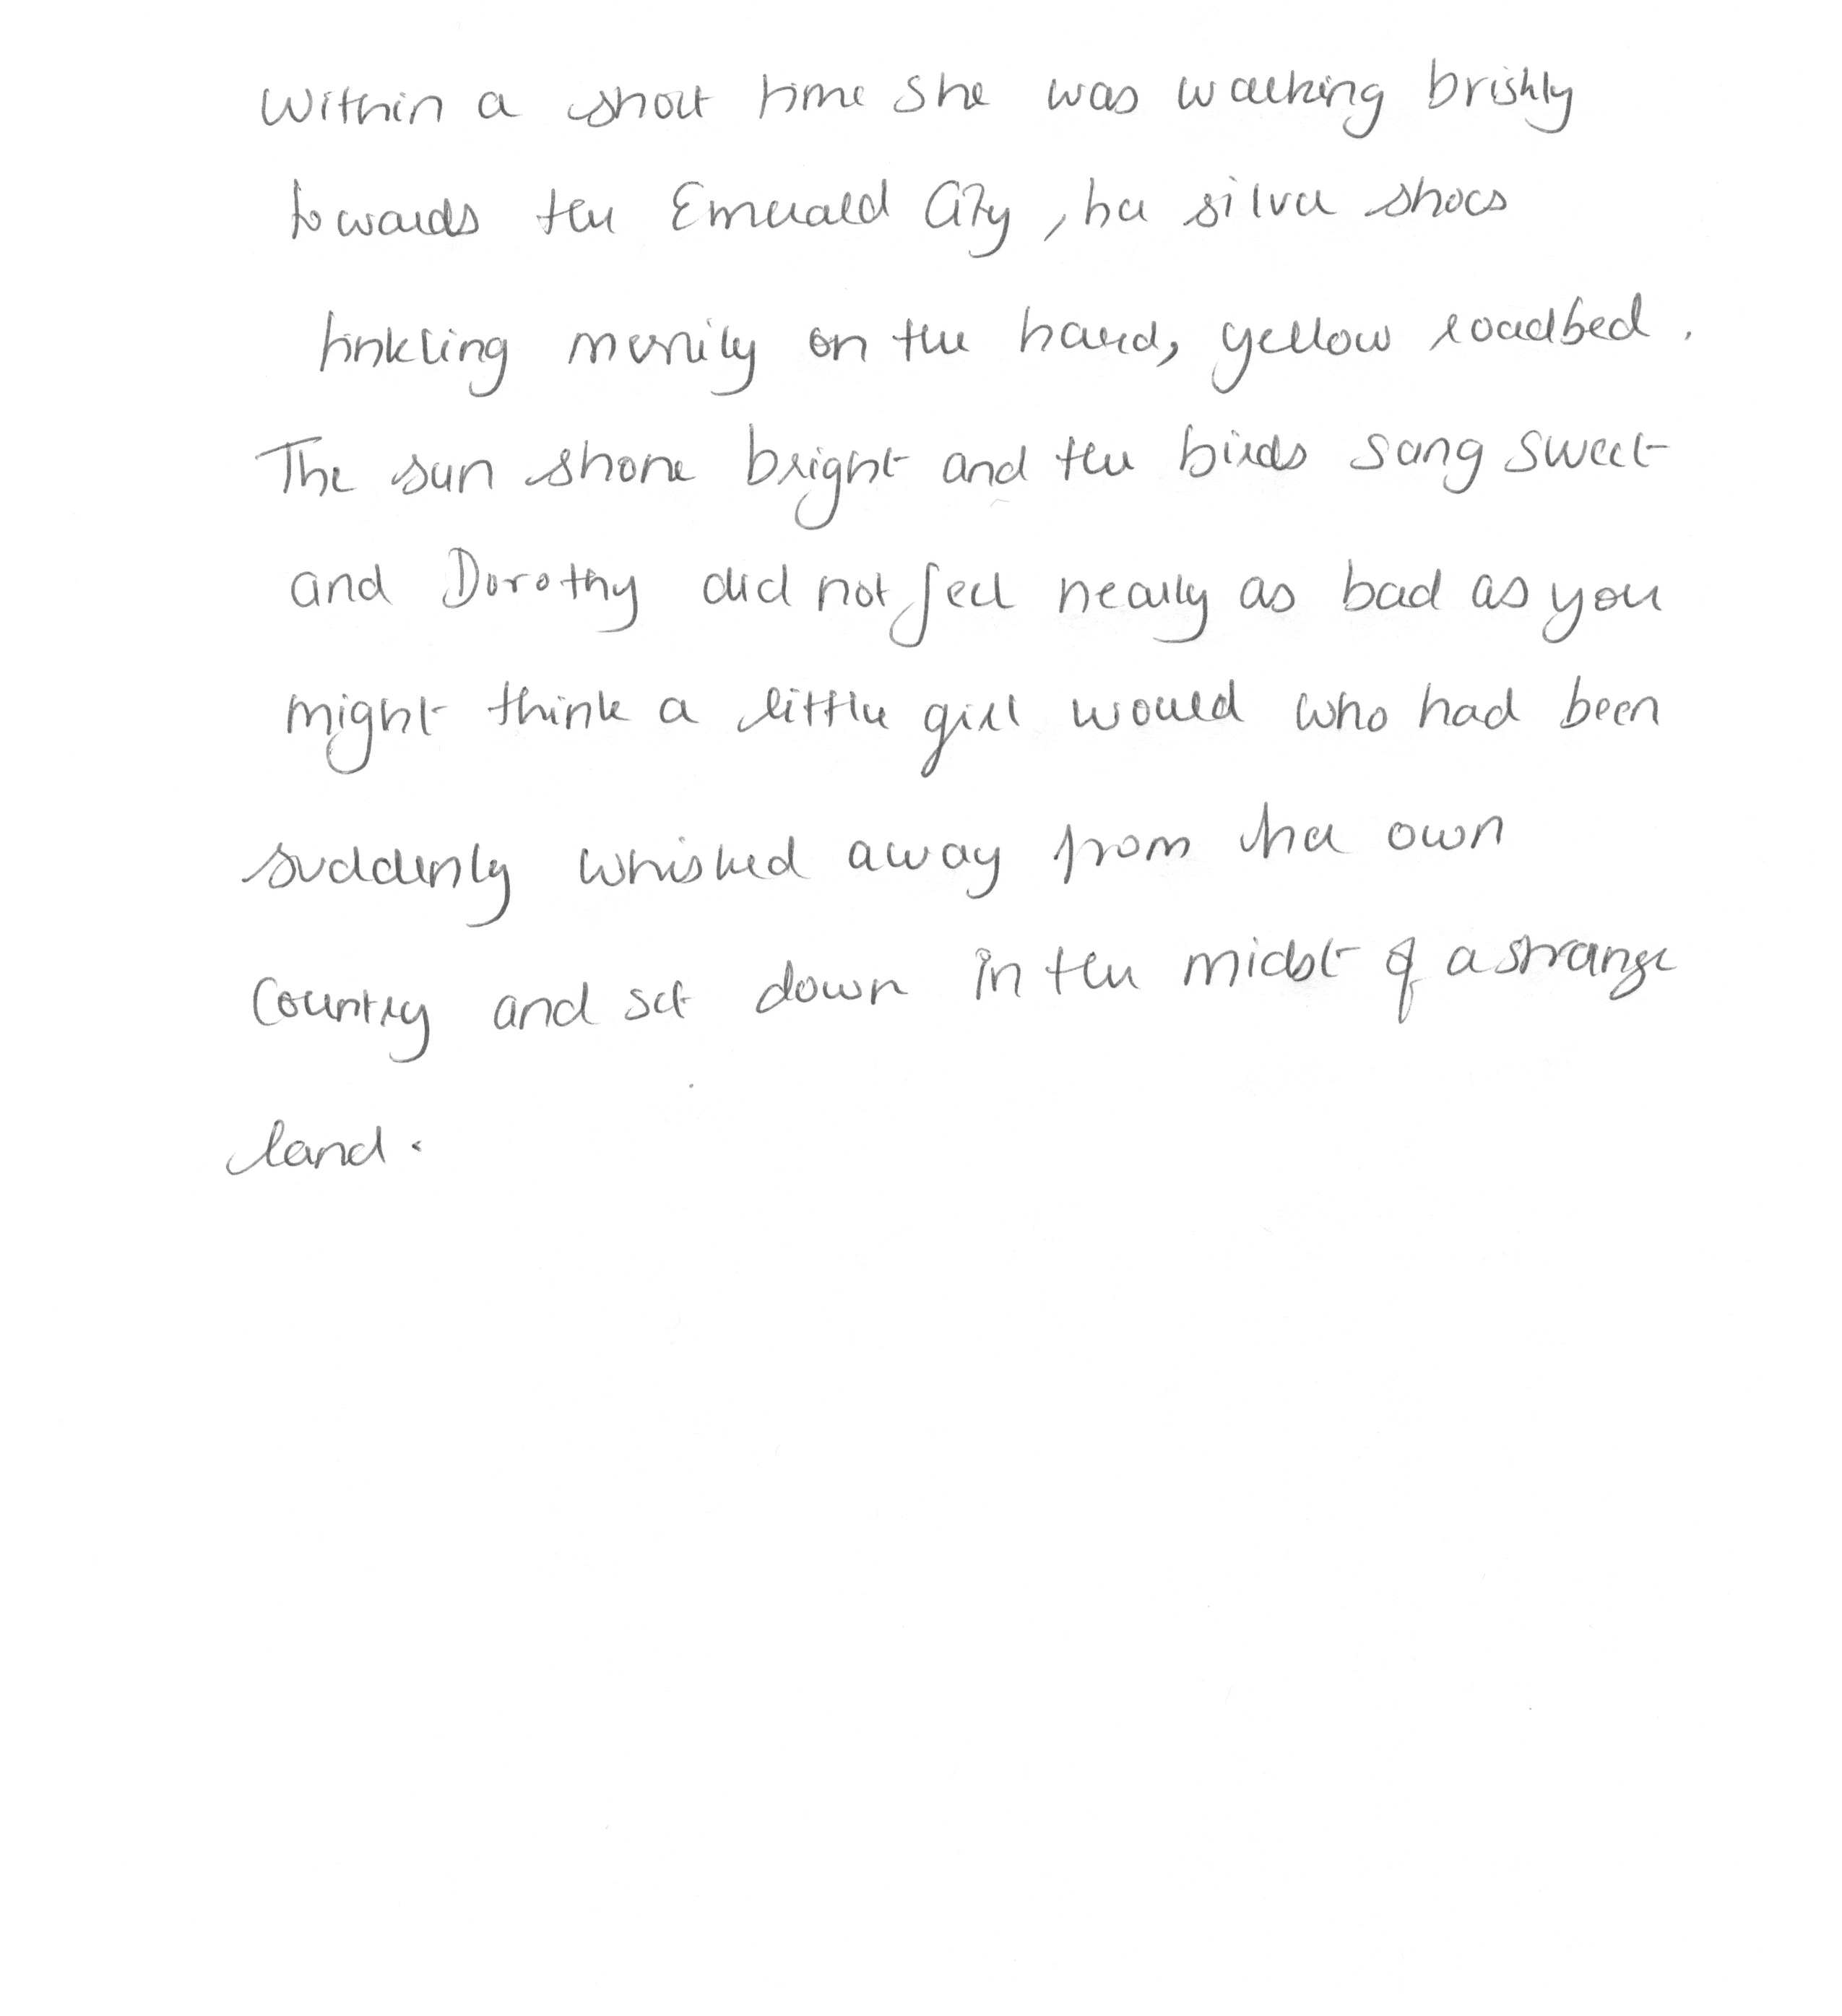 Within a short time she was walking briskly
towards the Emerald City, her silver shoes
tinkling merrily on the hard, yellow roadbed.
The sun shone bright and the birds sang sweet
and Dorothy did not feel nearly as bad as you
might think a little girl would who had been
suddenly whisked away from her own
country and set down in the midst of a strange
land.